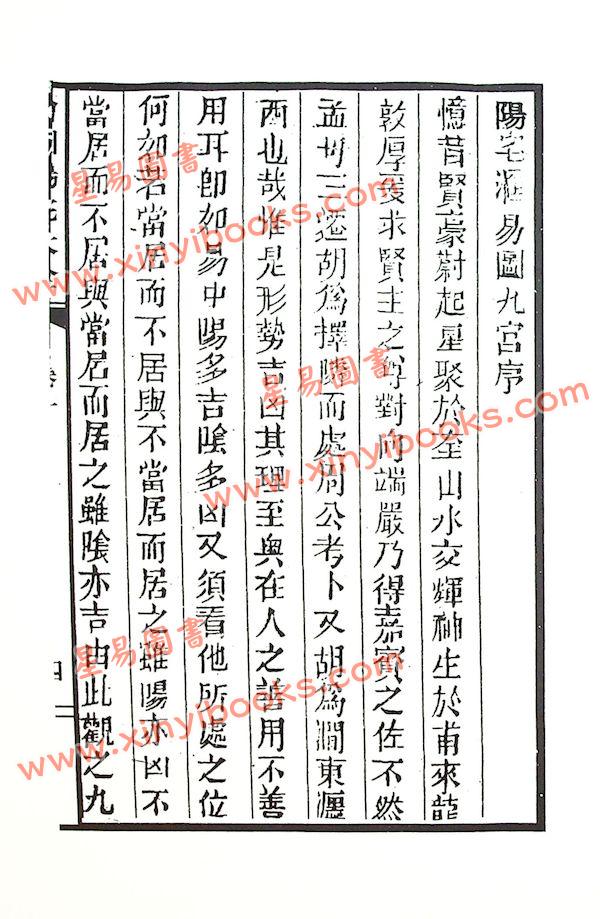 陽宅易圖九宮序
憶昔賢豪蔚起星聚於奎山水交輝神生於甫來龍
敦厚爰求賢主之尊對向端嚴乃得嘉賓之佐不然
孟母三遷胡爲擇隣而處周公考卜又胡爲澗東瀍
西也哉惟是形勢吉凶其理至奧在人之善用不善
用耳卽如易中陽多吉陰多凶又須看他所處之位
何如若當居而不居與不當居而居之雖陽亦凶不
當居而不居與當居而居之雖陰亦吉由此觀之九
四
星易圖書
www.xinyibooks.com
星易圖書
www.xinyibooks.com
星易圖書
www.xinyibooks.com
星易圖書
www.xinyibooks.com